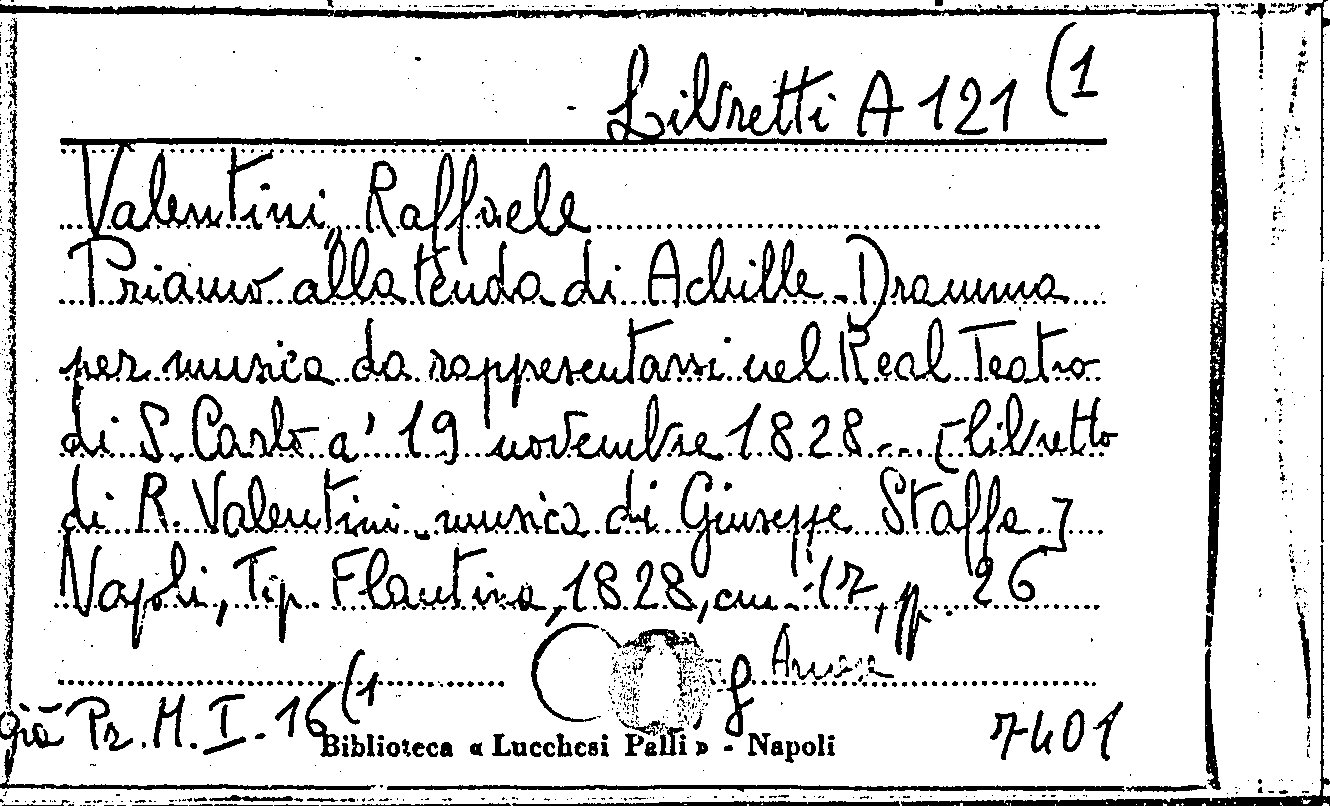 Libretti A 121 (1
Valentini, Raffaele
Priamo alla tenda di Achille. Dramma
per musica da rappresentarsi nel Real Teatro
di S. Carlo a' 19 novembre 1828... [libretto
di R. Valentini - musica di Giuseppe Staffa]
Napoli, Tip. Flautina, 1828, cm. 17, pp. 26
già Pr. M. I. - 16 (1
Biblioteca « Lucchesi Palli » - Napoli
7401